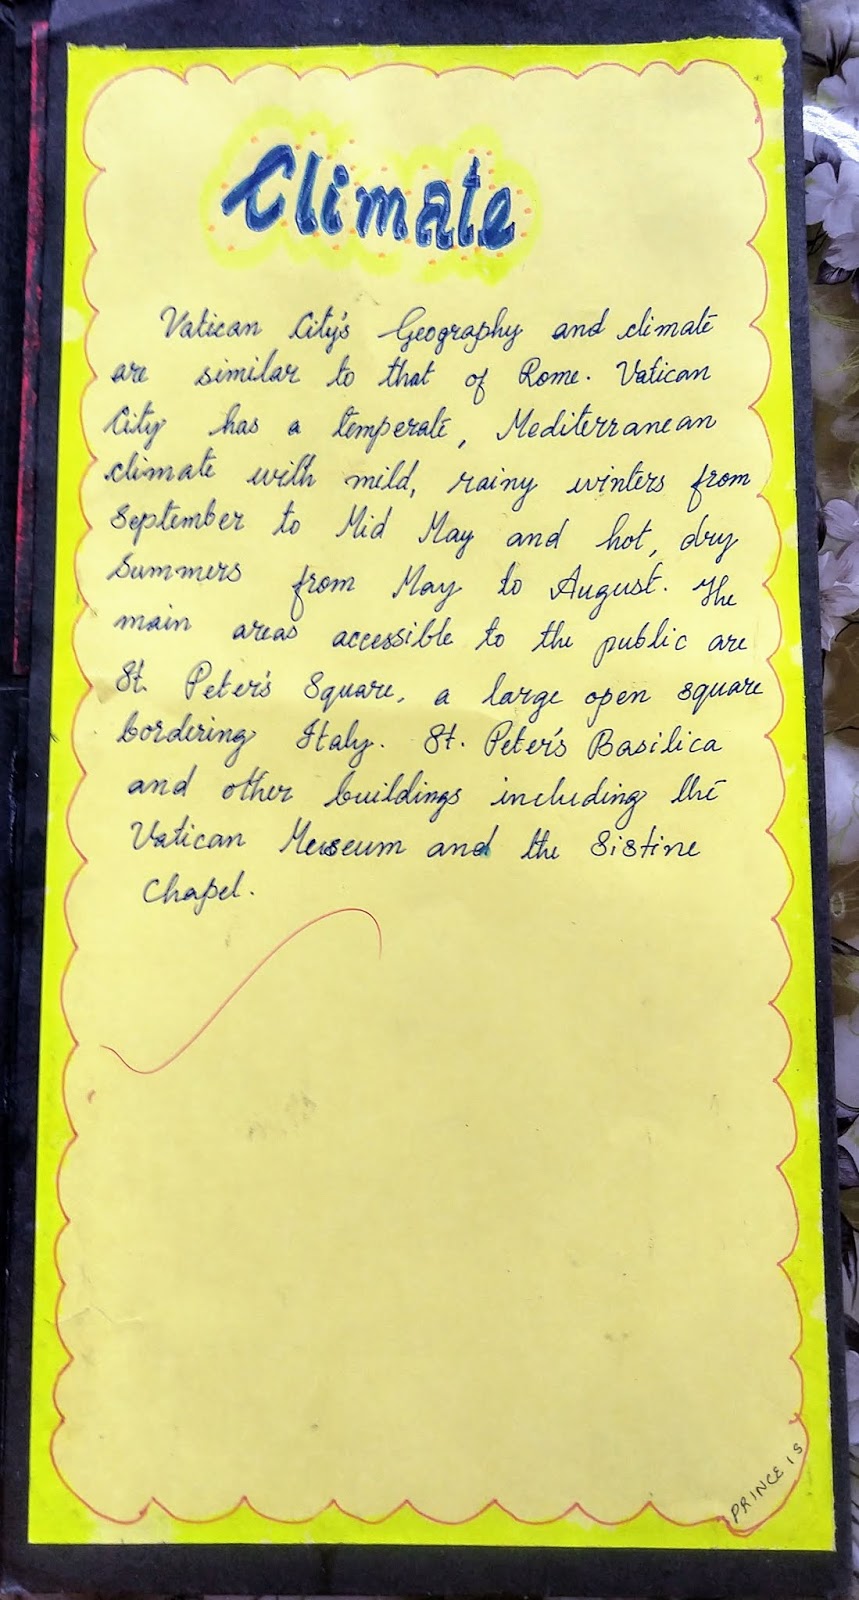 Climate
Vatican City's Geography and climate
are similar to that of Rome. Vatican
City has a temperate, Mediterranean
climate with mild, rainy winters from
September to Mid May and hot, dry
Summers from May to August. The
main areas accessible to the public are
St. Peter's Square, a large open square
bordering Italy. St. Peter's Basilica
and other buildings including the
Vatican Museum and the Sistine
Chapel.
PRINCE IS